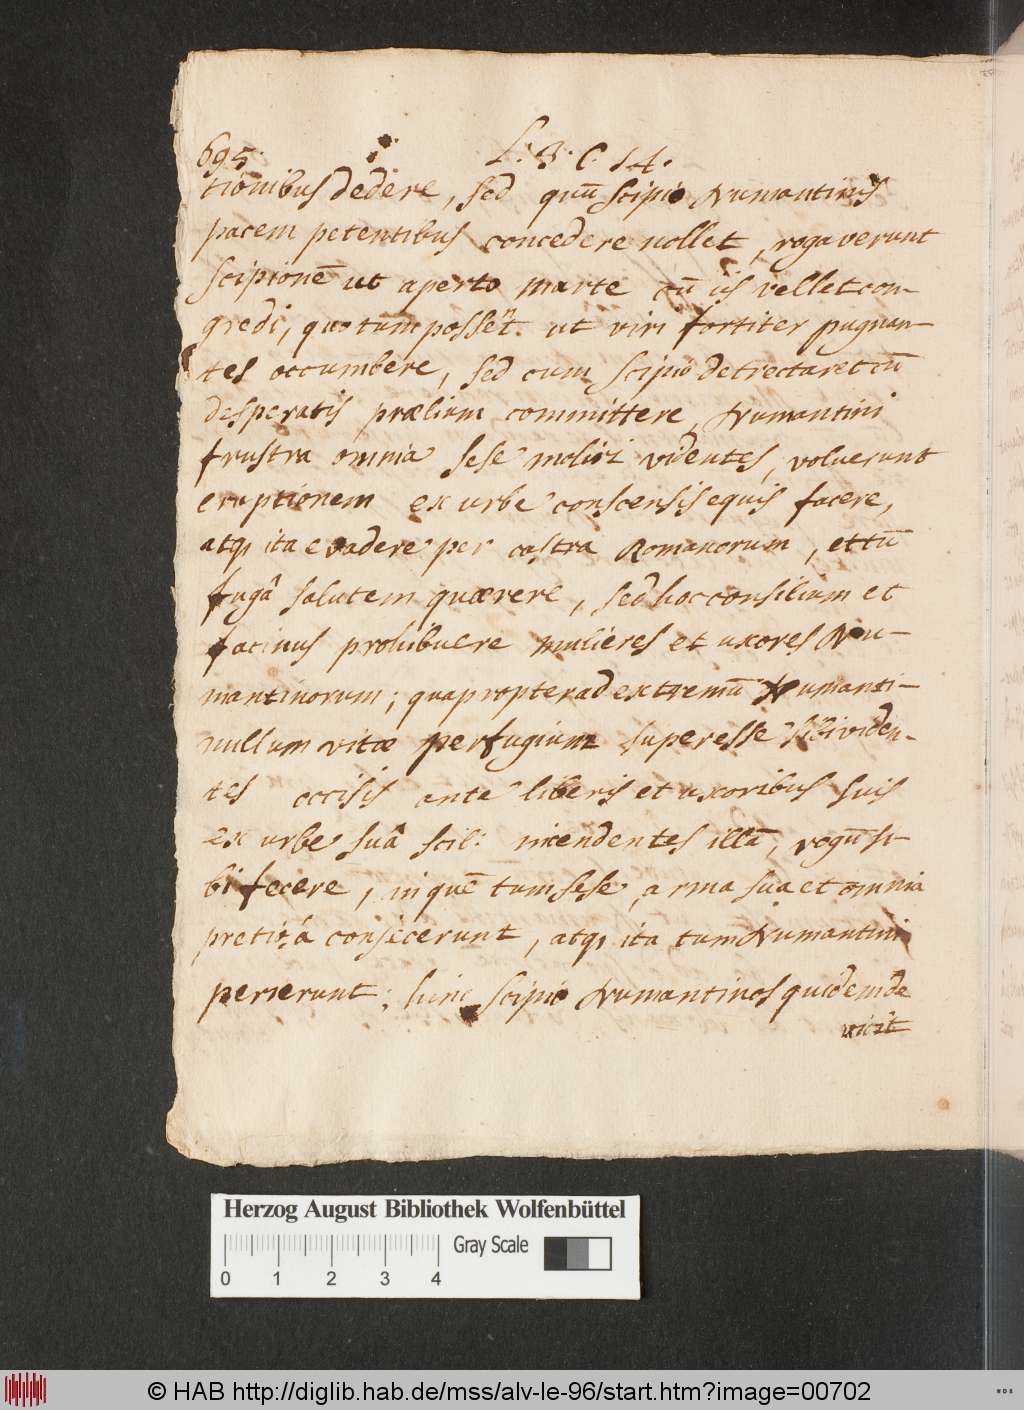 695. L. 3. C. 14.
tionibus dedere, sed quū scipio Numantinis
pacem petentibus concedere nollet, rogaverunt
scipionē ut aperto marte cū iis vellet con-
gredi, quo tum possent ut viri fortiter pugnan-
tes occumbere, sed cum scipio detrectaret cū
desperatis prælium committere, Numantini
frustra omnia sese moliri videntes, voluerunt
eruptionem ex urbe conscensis equis facere,
atq; ita evadere per castra Romanorum, et tū
fugâ salutem quærere, sed hoc consilium et
facinus prohibuere mulieres et uxores Nu-
mantinorum; quapropter ad extremū Numanti-
nullum vitæ perfugium superesse sibi viden-
tes occisis ante liberis et uxoribus suis
ex urbe suâ scil: incendentes illā, rogū si-
bi fecere, in quē tum sese, arma sua et omnia
pretiosa conjecerunt, atq; ita tum Numantini
perierunt; hinc scipio Numantinos quidem de
vicit
Herzog August Bibliothek Wolfenbüttel
0 1 2 3 4 Gray Scale
© HAB http://diglib.hab.de/mss/alv-le-96/start.htm?image=00702